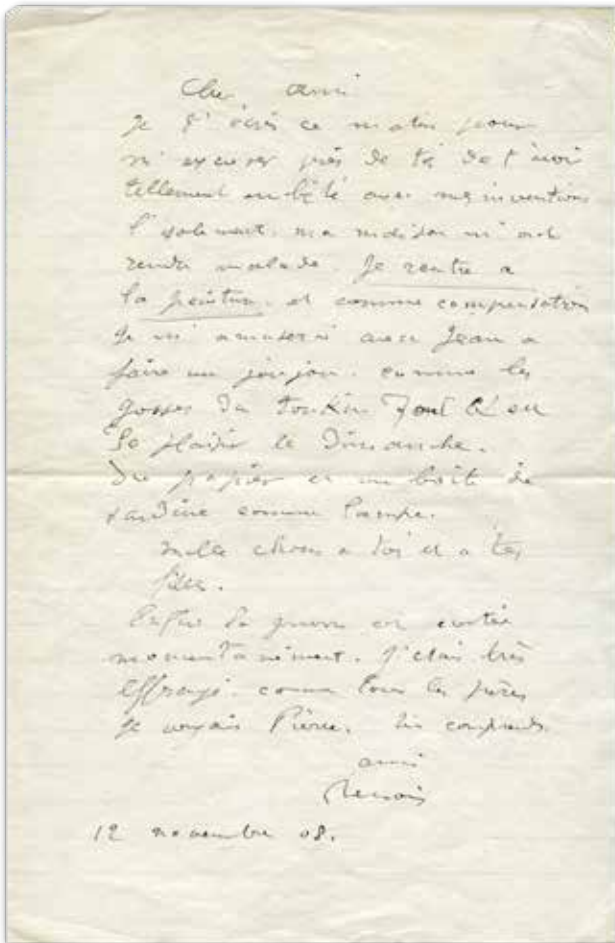 Cher ami
Je t'écris ce matin pour
m'excuser près de toi de t'avoir
tellement embêté avec mes inventions
l'isolement. ma maison m'ont
rendu malade. Je rentre a
la peinture. et comme compensation
je m'amuserai avec Jean a
faire un joujou. comme les
gosses du Tonkin font
le plaisir le Dimanche.
Du papier et un boite de
sardine comme lampe.
mille choses a toi et a tes
filles.
Enfin la guerre est evitée
momentanément. J'étais très
effrayé. comme tous les pères
Je voyais Pierre. tu comprends.
ami
Renoir
12 novembre 08.